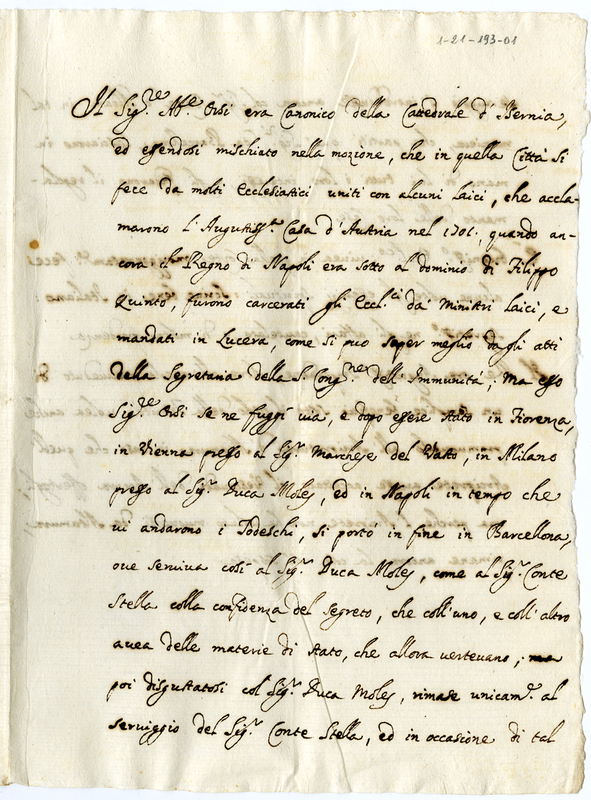 1-21-193-01
Il Sig.re Ab.e Orsi era Canonico della Cattedrale d'Isernia,
ed essendosi mischiato nella mozione, che in quella Città si
fece da molti Ecclesiastici uniti con alcuni laici, che accla-
marono l'Augustiss.a Casa d'Austria nel 1701; quando an-
cora il Regno di Napoli era sotto al dominio di Filippo
Quinto, furono carcerati gli Eccl.ci da' Ministri laici, e
mandati in Lucera, come si può saper meglio dagli atti
della Segretaria della S. Cong.ne dell'Immunità; Ma esso
Sig.re Orsi se ne fuggì via, e dopo essere stato in Fiorenza,
in Vienna presso al Sig.r Marchese del Vasto, in Milano
presso al Sig.r Duca Moles, ed in Napoli in tempo che
vi andarono i Todeschi, si portò in fine in Barcellona,
oue seruiua così al Sig.r Duca Moles, come al Sig.r Conte
Stella colla confidenza del segreto, che coll'uno, e coll'altro
auea delle materie di stato, che allora uerteuano; ma
poi disgustatosi col Sig.r Duca Moles, rimase unicam.e al
seruiggio del Sig.r Conte Stella, ed in occasione di tal